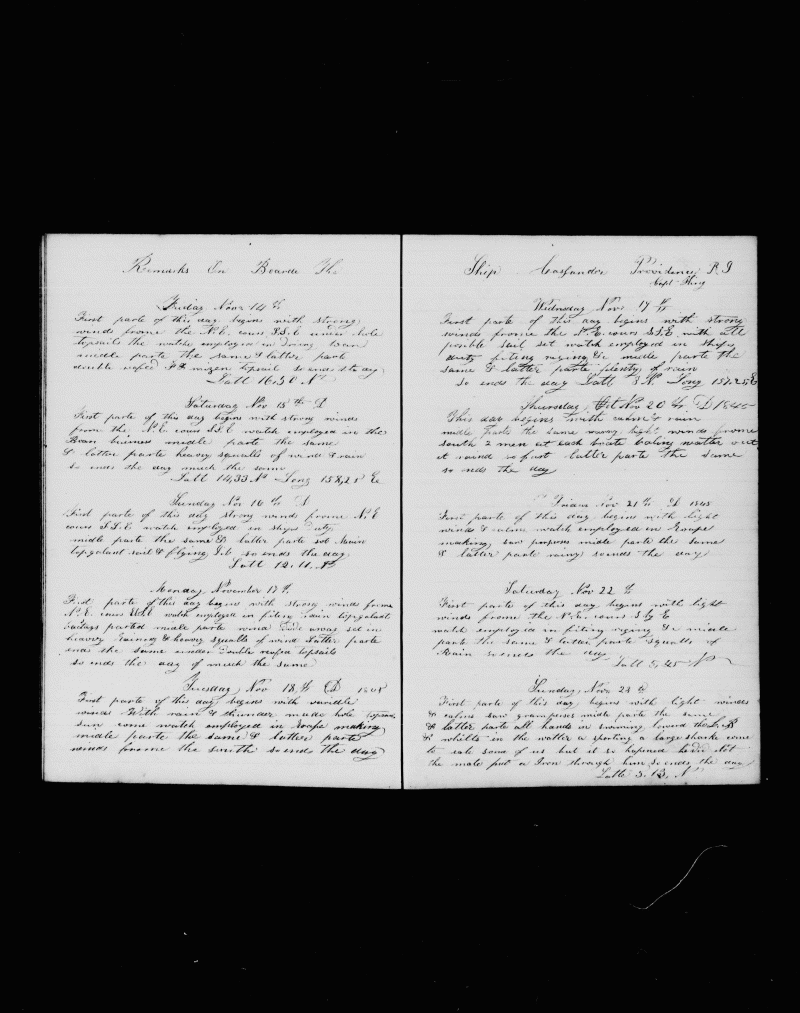 Remarks On Boarde The
Friday Nov 14th
First parte of this day begins with strong
winds frome the N.E. cours S.S.E under hole
topsails the watch employed in
middle parte the same & latter parte
double reefed & mizen topsail so ends the day
Latt 16.50 N
Saturday Nov 15th D
First parte of this day begins with strong winds
from the N.E. cours S.S.E watch employed in the
middle parte the same
& latter parte heavey squalls of wind & rain
so ends the day much the same
Latt 14,33 N Long 158,28 E
Sunday Nov 16th D
First parte of this day strong winds frome N.E
cours S.S.E watch employed in ships duty
midle parte the same & latter parte sot Maine
topgalant sail & flying Jib so ends the day
Latt 12.11 N
Monday November 17th
First parte of this day begins with strong winds frome
N.E. cours watch employed in fiting main topgalant
parted midle parte wind set in
heavey rainey & heavey squalls of wind Latter parte
ends the same under double reefed topsails
so ends the day of much the same
Tuesday Nov 18th D
First parte of this day begins with varible
winds With rain & thunder made hole topsails
sun come watch employed in roape making
midle parte the same & latter parte
winds frome the south so ends the day
Ship Cassander Providence R I
Capt
Wednsday Nov 19th
First parte of this day begins with strong
winds frome the N.E. cours S.S.E with all
posible sail set watch employed in ships
duty fiting riging &c midle parte the
same & latter parte plenty of rain
so ends the day Latt 8 N Long 157.25 E
Thursday Nov 20th D 1845
This day begins with calm & rain
midle parte the same rainey light winds frome
south 2 men at each boate baling watter out
it raind so fast latter parte the same
so ends the day
Friday Nov 21th D 1845
First parte of this day begins with light
winds & calm watch employed in Roape
making, saw porposes midle parte the same
& latter parte rainy so ends the day
Saturday Nov 22th
First parte of this day begins with light
winds frome the N.E. cours S by E
watch employed in fiting riging &c midle
parte the same & latter parte squalls of
Rain so ends the day
Latt 5,45 N
Sunday Nov 23th
First parte of this day begins with light winds
& calms saw grampuses midle parte the same
& latter parte all hands in swiming round the Ship
& whilts in the watter a sporting a large sharke come
to eate some of us but it so hapened he did not
the mate put a Iron through him so ends the day
Latt 5. 13, N